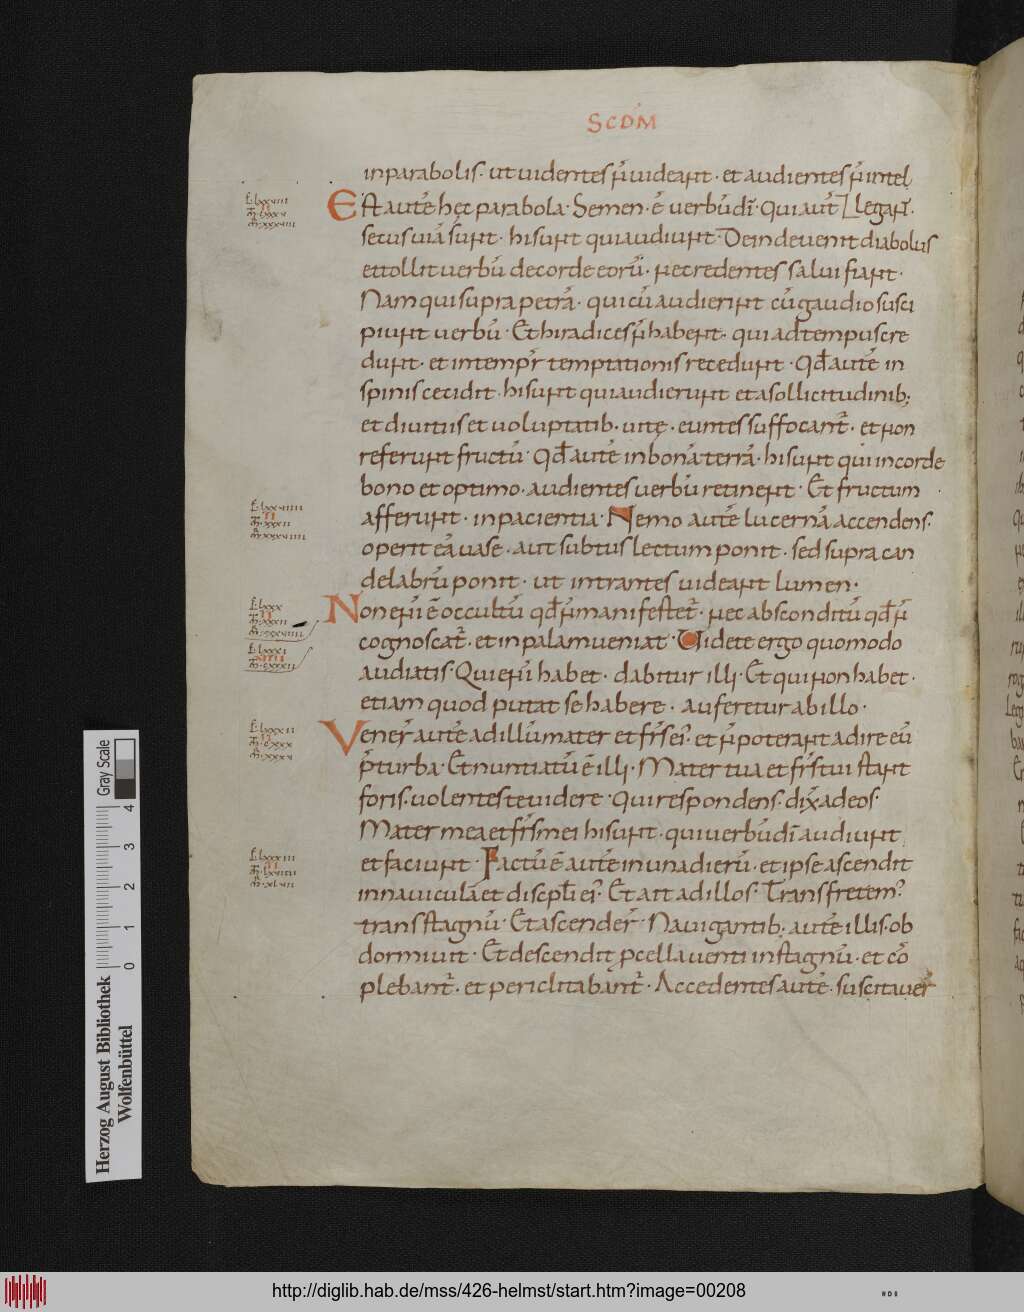 SCDM
in parabolis· ut uidentes ñ uideant· et audientes ñ intel
Est autē hęc parabola· Semen· ē uerbū dī· Qui aut̄ legant̄·
secus uiā sunt· hi sunt qui audiunt· Deinde uenit diabolus
et tollit uerbū de corde eorū· ne credentes salui fiant·
Nam qui supra petrā· qui cū audierint cū gaudio susci
piunt uerbū· Et hi radices ñ habent· qui ad tempus cre
dunt· et in tempr̄ temptationis recedunt· Qd̄ autē in
spinis cecidit· hi sunt qui audierunt et a sollicitudinib;
et diuitiis et uoluptatib· uitę· euntes suffocant̄· et non
referunt fructū· Qd̄ autē in bonā terrā· hi sunt qui in corde
bono et optimo· audientes uerbū retinent· Et fructum
afferunt· in pacientia· Nemo autē lucernā accendens·
operit eā uase· aut subtus lectum ponit· sed supra can
delabrū ponit· ut intrantes uideant lumen·
Non enī ē occultū qd̄ ñ manifestet̄· nec absconditū qd̄ ñ
cognoscat̄· et in palam ueniat· Uidete ergo quomodo
audiatis· Qui enī habet· dabitur illi· Et qui non habet·
etiam quod putat se habere· auferetur ab illo·
Vener̄ autē ad illū mater et fr̄s ei· et ñ poterant adire eū
p̄ turba· Et nuntiatū ē illi· Mater tua et fr̄s tui stant
foris· uolentes te uidere· Qui respondens· dix̄ ad eos·
Mater mea et fr̄s mei hi sunt· qui uerbū dī audiunt
et faciunt· Factū ē autē in una dierū· et ipse ascendit
in nauiculā et discipl̄i ei· Et ait ad illos· Transfretem·
trans stagnū· Et ascender̄· Nauigantib· autē illis· ob
dormiuit· Et descendit pcella uenti in stagnū· et cō
plebant̄· et periclitabant̄· Accedentes autē· suscitauer̄
Gray Scale
4
3
2
1
0
Herzog August Bibliothek
Wolfenbüttel
http://diglib.hab.de/mss/426-helmst/start.htm?image=00208